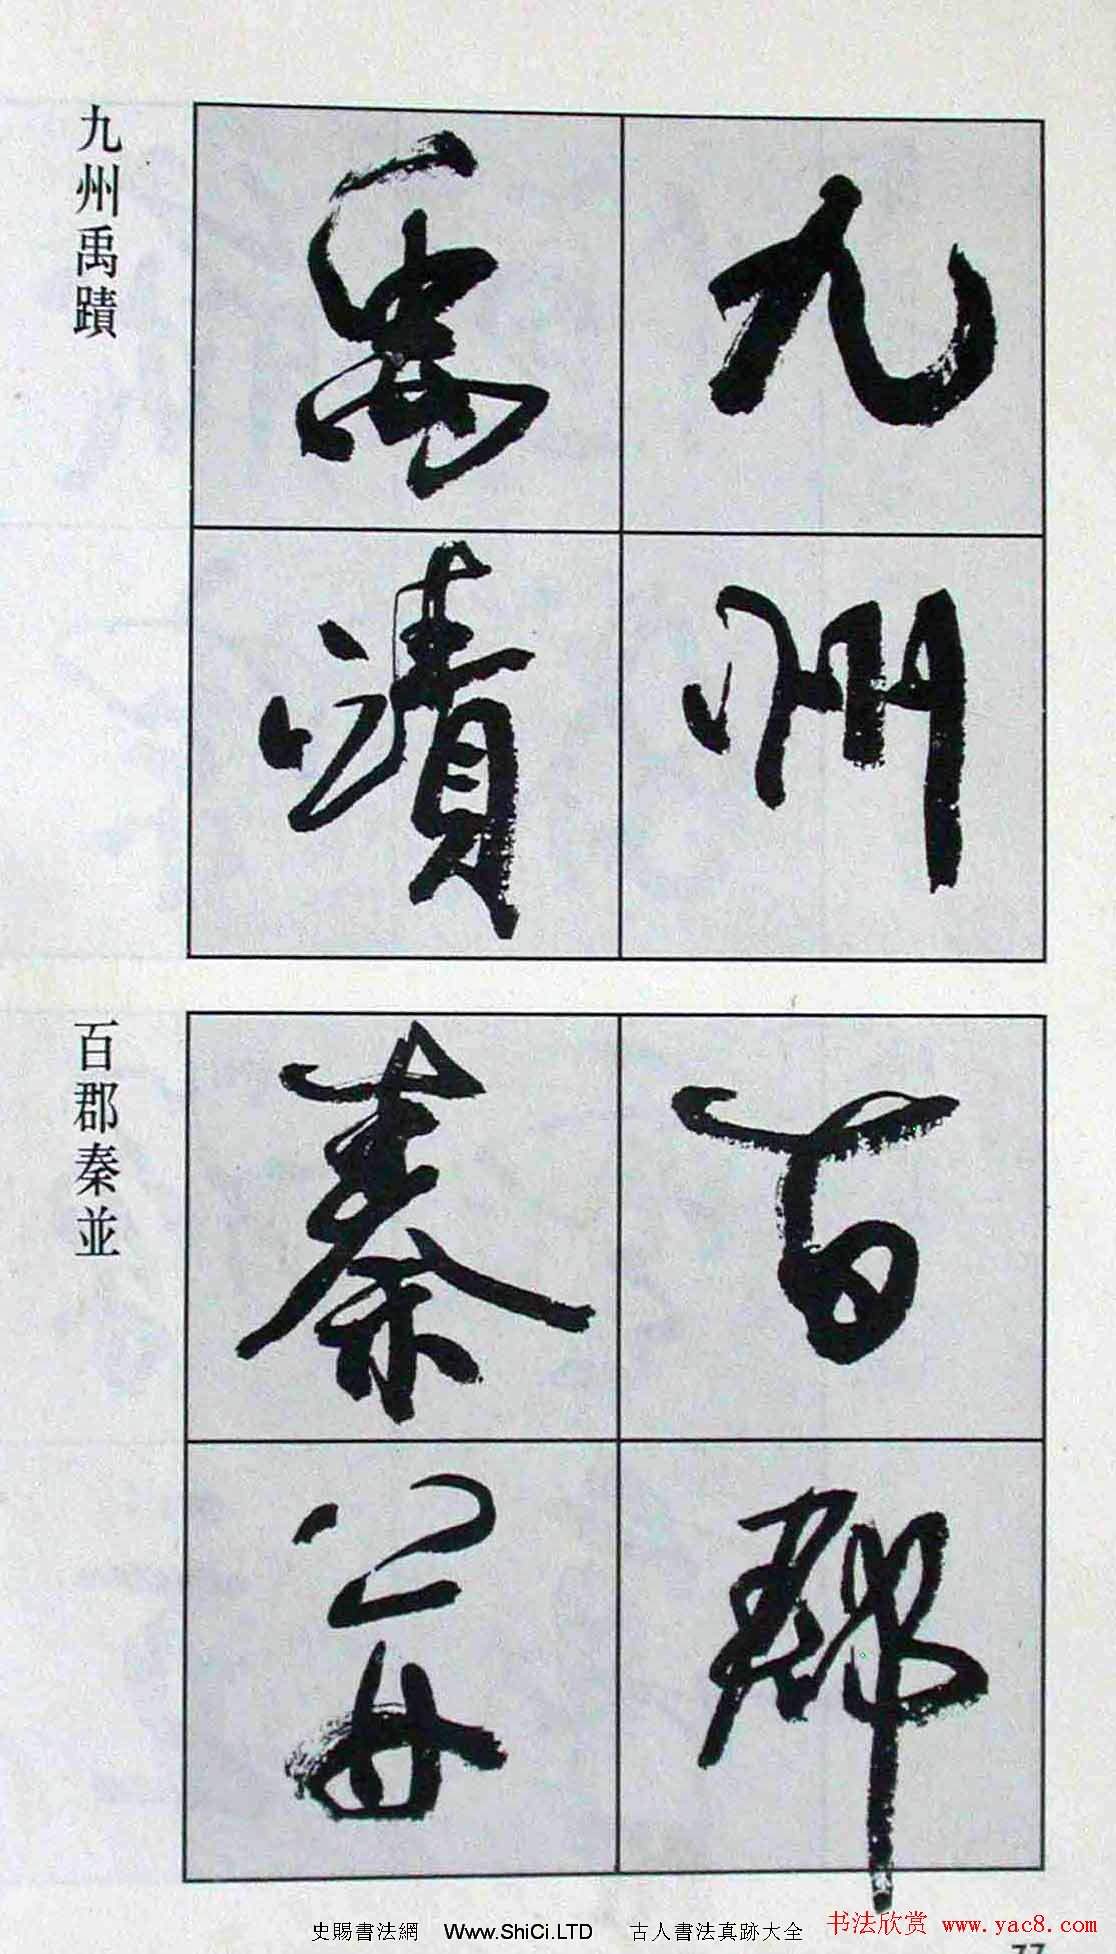 九州禹蹟
九州
禹蹟
百郡秦並
百郡
秦并
史賜書法網 Www.ShiCi.LTD 古人書法真跡大全
书法欣赏 www.yac8.com
77